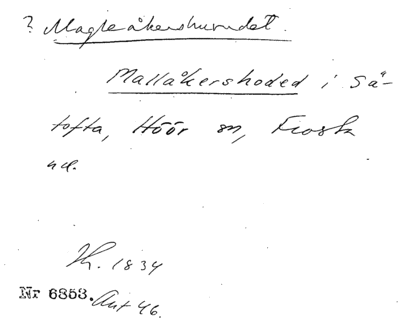 ? Magleåkershuvudet.
Mallåkershoded i Så-
tofta, Höör sn, Frosta
hd.
Kh. 1834
Nr 6853. Ant 46.